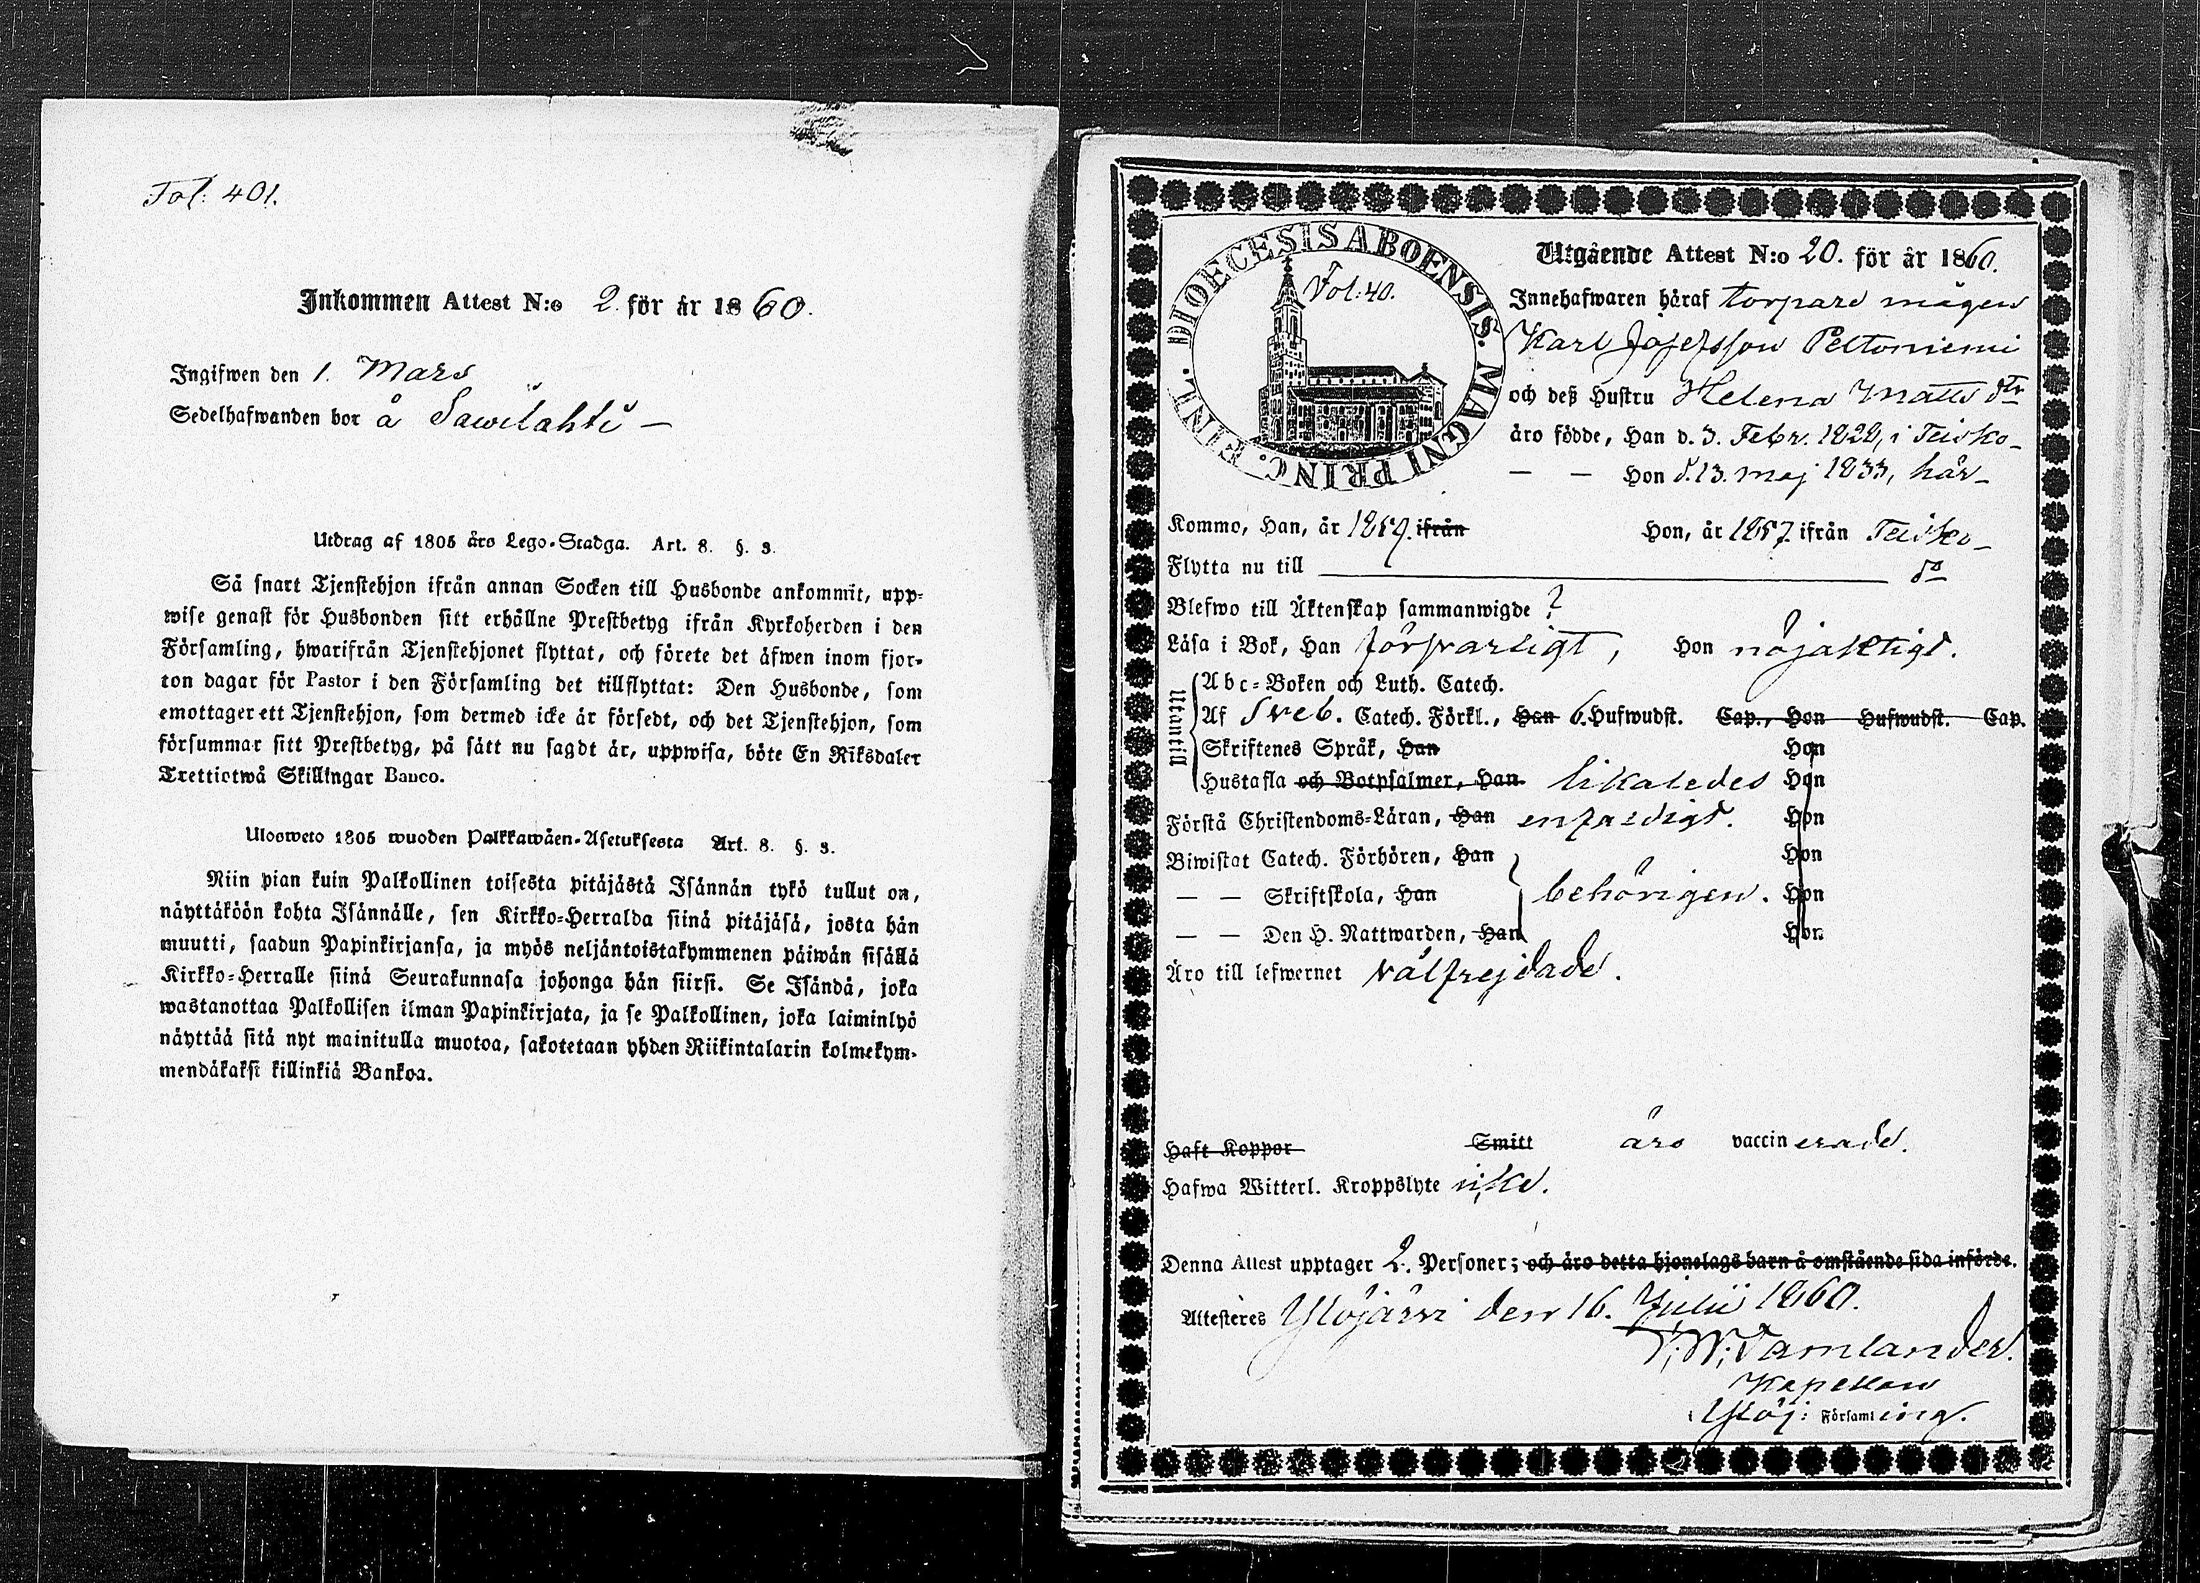 Fol: 401.
Inkommen Attest N:o 2. för år 1860.
Ingifwen den 1. Mars
Sedelhafwanden bor å Sawilahti –
Utdrag af 1805 års Lego-Stadga. Art. 8. §. 3.
Så snart Tjenstehjon ifrån annan Socken till Husbonde ankommit, upp-
wise genast för Husbonden sitt erhållne Prestbetyg ifrån Kyrkoherden i den
Församling, hwarifrån Tjenstehjonet flyttat, och förete det äfwen inom fjor-
ton dagar för Pastor i den Församling det tillflyttat: Den Husbonde, som
emottager ett Tjenstehjon, som dermed icke är försedt, och det Tjenstehjon, som
försummar sitt Prestbetyg, på sätt nu sagdt är, uppwisa, böte En Riksdaler
Trettiotwå Skillingar Banco.
Ulosweto 1805 wuoden Palkkawäen-Asetuksesta Art. 8. §. 3.
Niin pian kuin Palkollinen toisesta pitäjästä Isännän tykö tullut on,
näyttäköön kohta Isännälle, sen Kirkko-Herralda siinä pitäjäsä, josta hän
muutti, saadun Papinkirjansa, ja myös neljäntoistakymmenen päiwän sisällä
Kirkko-Herralle siinä Seurakunnasa johonga hän siirsi. Se Isändä, joka
wastanottaa Palkollisen ilman Papinkirjata, ja se Palkollinen, joka laiminlyö
näyttää sitä nyt mainitulla muotoa, sakotetaan yhden Riikintalarin kolmekym-
mendäkaksi killinkiä Bankoa.
DIOECESIS ABOENSIS. MAGNI PRINC. FINL.
Fol: 40.
Utgående Attest N:o 20. för år 1860.
Innehafwaren häraf torpare mågen
Karl Josefsson Peltoniemi
och deß Hustru Helena Matts dtr
äro födde, Han d. 3. Febr. 1828, i Teisko –
– – Hon d. 13. maj 1833, här –
Kommo, Han, år 1859. ifrån Hon, år 1857. ifrån Teisko –
Flytta nu till do
Blefwo till Äktenskap sammanwigde ?
Läsa i Bok, Han försvarligt, Hon nöjaktigt.
Utantill
Abc-Boken och Luth. Catech.
Af Sveb. Catech. Förkl., Han 6. Hufwudst. Cap., Hon Hufwudst. Cap.
Skriftenes Språk, Han Hon
Hustafla och Botpsalmer, Han likaledes Hon
Förstå Christendoms-Läran, Han enfaldigt. Hon
Biwistat Catech. Förhören, Han Hon
– – Skriftskola, Han behörigen. Hon
– – Den H. Nattwarden, Han Hon
Äro till lefwernet välfrejdade.
Haft Koppor Smitt äro vaccinerade.
Hafwa Witterl. Kroppslyte icke.
Denna Attest upptager 2. Personer; och äro detta hjonelags barn å omstående sida införde.
Attesteres Ylöjärvi den 16. Julii 1860.
Kapellan
i Ylöj: Församling.